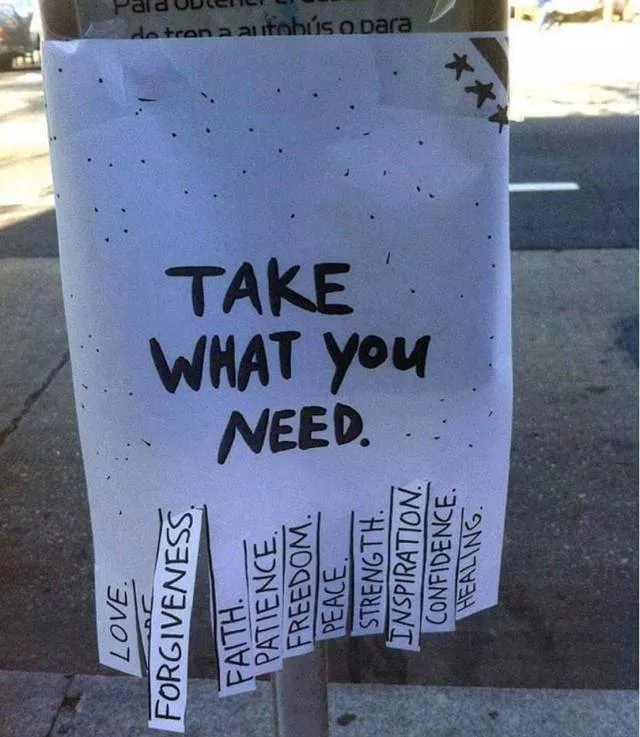 Para obtener
de tren a autobús o para
TAKE
WHAT YOU
NEED.
LOVE.
FORGIVENESS.
FAITH.
PATIENCE.
FREEDOM.
PEACE.
STRENGTH.
INSPIRATION.
CONFIDENCE.
HEALING.